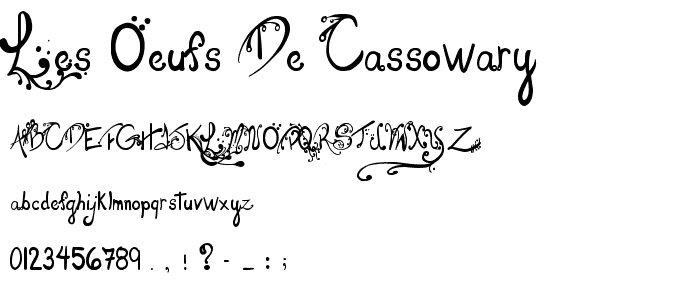 Les Oeufs De Cassowary
ABCDEFGHIJKLMNOPQRSTUVWXYZ
abcdefghijklmnopqrstuvwxyz
0123456789 . , ! ? - _ : ;